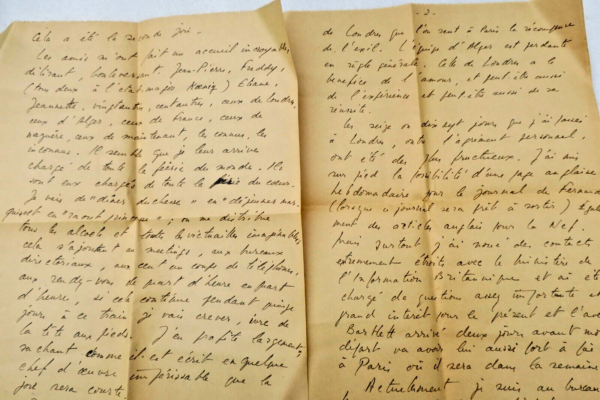 Cela a été la seconde joie.
Les amis m'ont fait un accueil incroyable,
délirant, bouleversant. Jean-Pierre, Freddy,
(tous deux à l'état-major Koenig) Eliane,
Jeannette, vingt autres, cent autres, ceux de Londres,
ceux d'Alger, ceux de France, ceux de
naguère, ceux de maintenant, les connus, les
inconnus. Il semble que je leur arrive
chargé de toute la féérie du monde. Ils
sont eux chargés de toute la du cœur.
Je vais de "dîners du chesse" en "déjeuners mar-
quisat" en ; on me distribue
tous les alcools et toutes les victuailles imaginables,
cela s'ajoutant aux meetings, aux bureaux
directoriaux, aux cent un coups de téléphone,
aux rendez-vous de quart d'heure en quart
d'heure, si cela continue pendant quinze
jours à ce train je vais crever, ivre de
la tête aux pieds. J'en profite largement
sachant comme il est écrit en quelque
chef d'œuvre impérissable que la
joie sera courte
- 2 -
de Londres que l'on sent à Paris la récompense
de l'exil. L'équipe d'Alger est perdante
en règle générale. Celle de Londres a le
bénéfice de l'amour, et peut être aussi
de l'expérience et peut être aussi de sa
réussite.
Les seize ou dix sept jours que j'ai passés
à Londres, outre l'agrément personnel,
ont été des plus fructueux. J'ai mis
sur pied la possibilité d'une page anglaise
hebdomadaire pour le journal de Fernand
(lorsque ce journal sera prêt à sortir) égale-
ment des articles anglais pour la Nef.
Mais surtout j'ai noué des contacts
extrêmement étroits avec le ministère de
l'Information Britannique et ai été
chargé de questions assez importantes et
grand intérêt pour le présent et l'ave
Bartlett arrivé deux jours avant mon
départ va avoir lui aussi fort à faire
à Paris où il sera dans la semaine
Actuellement je suis au bureau